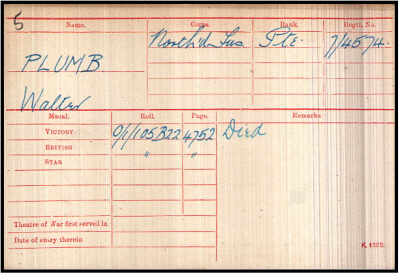 5
Name. Corps. Rank. Regtl. No.
North'd Fus Pte. 7/4574.
PLUMB
Walter
Medal. Roll. Page. Remarks.
VICTORY O/1/105B22 4752 Died
BRITISH " "
STAR
Theatre of War first served in
Date of entry therein
K. 1380.